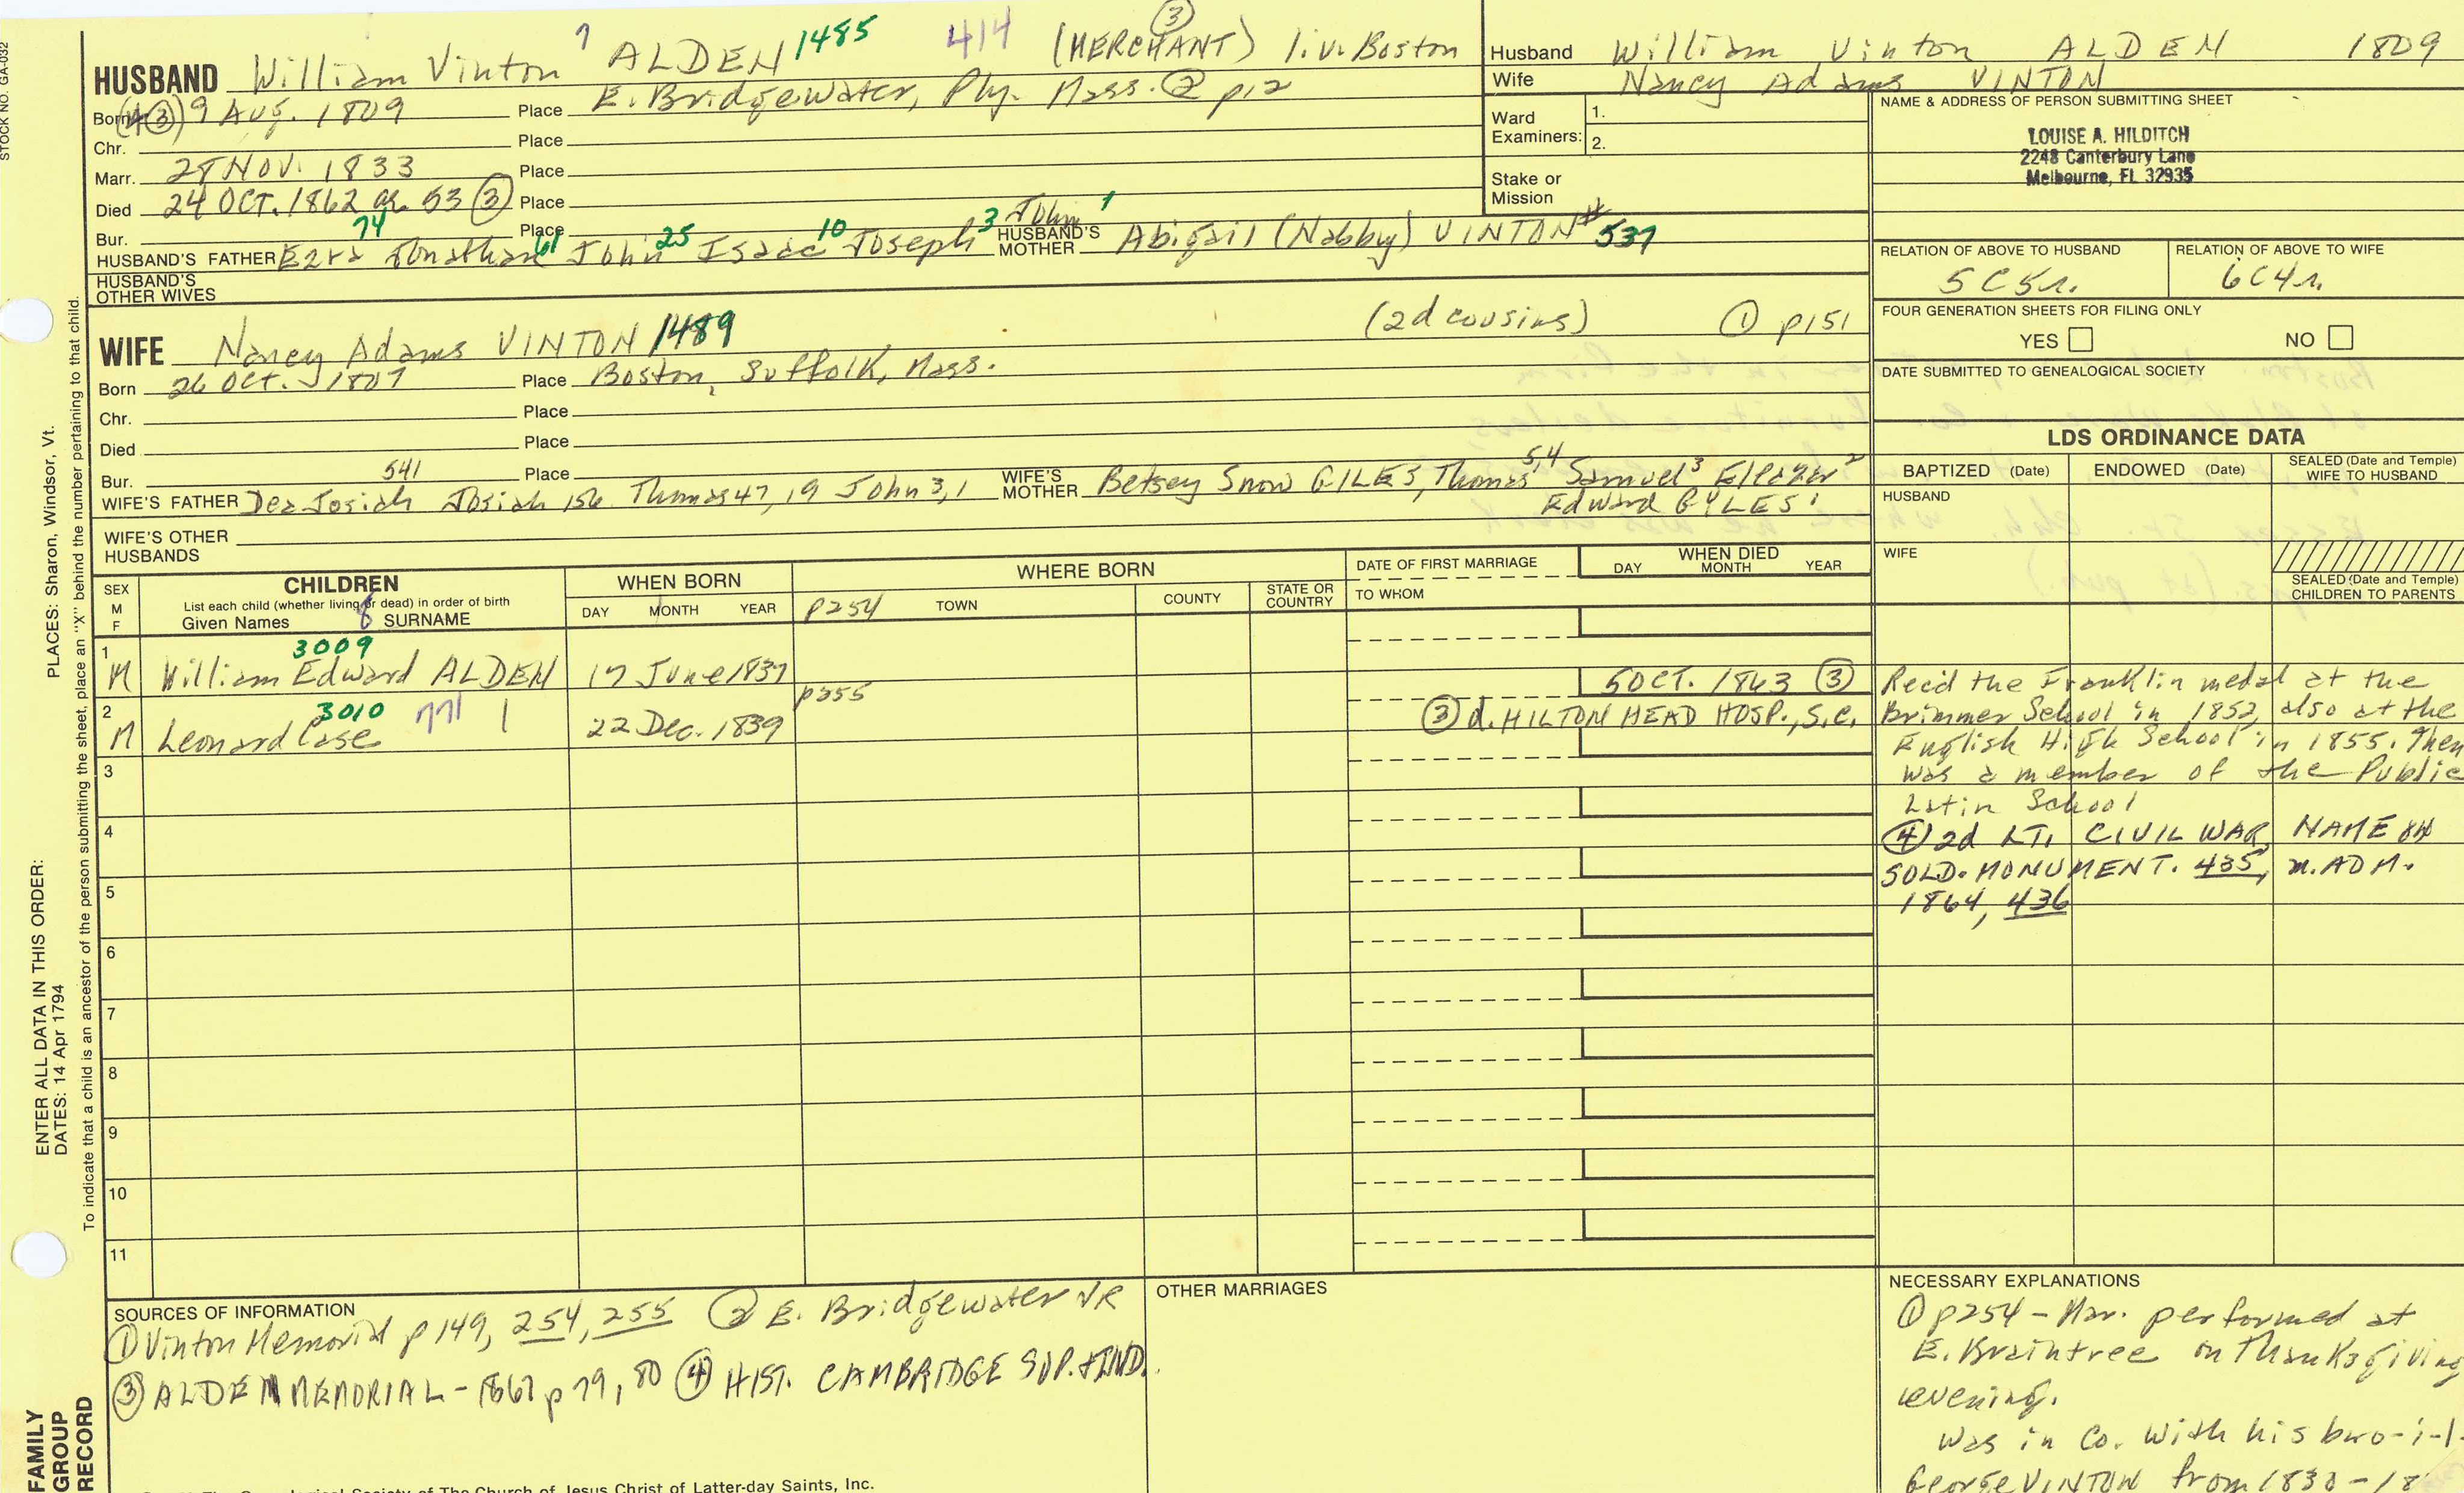 STOCK NO. GA-032
HUSBAND William Vinton 7 ALDEN 1485 414 (MERCHANT) ③ liv. Boston
Born ③ 9 Aug. 1809 Place E. Bridgewater, Ply. Mass. ② p12
Chr. Place
Marr. 28 NOV. 1833 Place
Died 24 OCT. 1862 ae. 53 ③ Place
Bur. Place
HUSBAND'S FATHER Ezra 74 Jonathan 61 John 25 Isaac 10 Joseph 3 John 1 HUSBAND'S MOTHER Abigail (Nabby) VINTON # 537
HUSBAND'S OTHER WIVES
WIFE Nancy Adams VINTON 1489 (2d cousins) ① p151
Born 26 Oct. 1807 Place Boston, Suffolk, Mass.
Chr. Place
Died Place
Bur. Place
WIFE'S FATHER Dea Josiah 541 Josiah 156 Thomas 47, 19 John 3, 1 WIFE'S MOTHER Betsey Snow GILES, Thomas 5,4 Samuel 3 Eleazer 2
Edward GYLES 1
WIFE'S OTHER HUSBANDS
Husband William Vinton ALDEN 1809
Wife Nancy Adams VINTON
Ward Examiners: 1.
2.
Stake or Mission
NAME & ADDRESS OF PERSON SUBMITTING SHEET
LOUISE A. HILDITCH
2248 Canterbury Lane
Melbourne, FL 32935
RELATION OF ABOVE TO HUSBAND RELATION OF ABOVE TO WIFE
5C5r. 6C4r.
FOUR GENERATION SHEETS FOR FILING ONLY
YES NO
DATE SUBMITTED TO GENEALOGICAL SOCIETY
LDS ORDINANCE DATA
BAPTIZED (Date) ENDOWED (Date) SEALED (Date and Temple) WIFE TO HUSBAND
HUSBAND
WIFE
SEALED (Date and Temple) CHILDREN TO PARENTS
SEX M F
CHILDREN
List each child (whether living or dead) in order of birth
Given Names 8 SURNAME
WHEN BORN
DAY MONTH YEAR
WHERE BORN
p254 TOWN COUNTY STATE OR COUNTRY
DATE OF FIRST MARRIAGE
TO WHOM
WHEN DIED
DAY MONTH YEAR
1 M 3009 William Edward ALDEN 17 June 1837
2 M 3010 771 Leonard Case 22 Dec. 1839 p255 5 OCT. 1863 ③
③ d. HILTON HEAD HOSP., S.C.
Rec'd the Franklin medal at the
Brimmer School in 1852, also at the
English High School in 1855. Then
was a member of the Public
Latin School
④ 2d LT. CIVIL WAR, NAME on
SOLD. MONUMENT. 435, n. ADM.
1864, 436
3
4
5
6
7
8
9
10
11
SOURCES OF INFORMATION
① Vinton Memorial p 149, 254, 255 ② E. Bridgewater VR
③ ALDEN MEMORIAL - 1867 p 79, 80 ④ HIST. CAMBRIDGE SUP. & IND.
OTHER MARRIAGES
NECESSARY EXPLANATIONS
① p254 - Mar. performed at
E. Braintree on Thanksgiving
evening.
Was in Co. with his bro-i-l
George VINTON from 1830-18
The Genealogical Society of The Church of Jesus Christ of Latter-day Saints, Inc.
ENTER ALL DATA IN THIS ORDER:
DATES: 14 Apr 1794
PLACES: Sharon, Windsor, Vt.
To indicate that a child is an ancestor of the person submitting the sheet, place an "X" behind the number pertaining to that child.
FAMILY
GROUP
RECORD